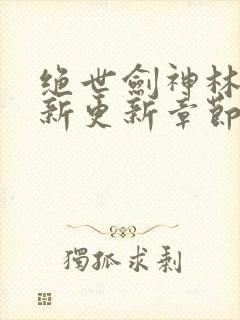 绝世劍神林
新更新章節
獨孤求剥